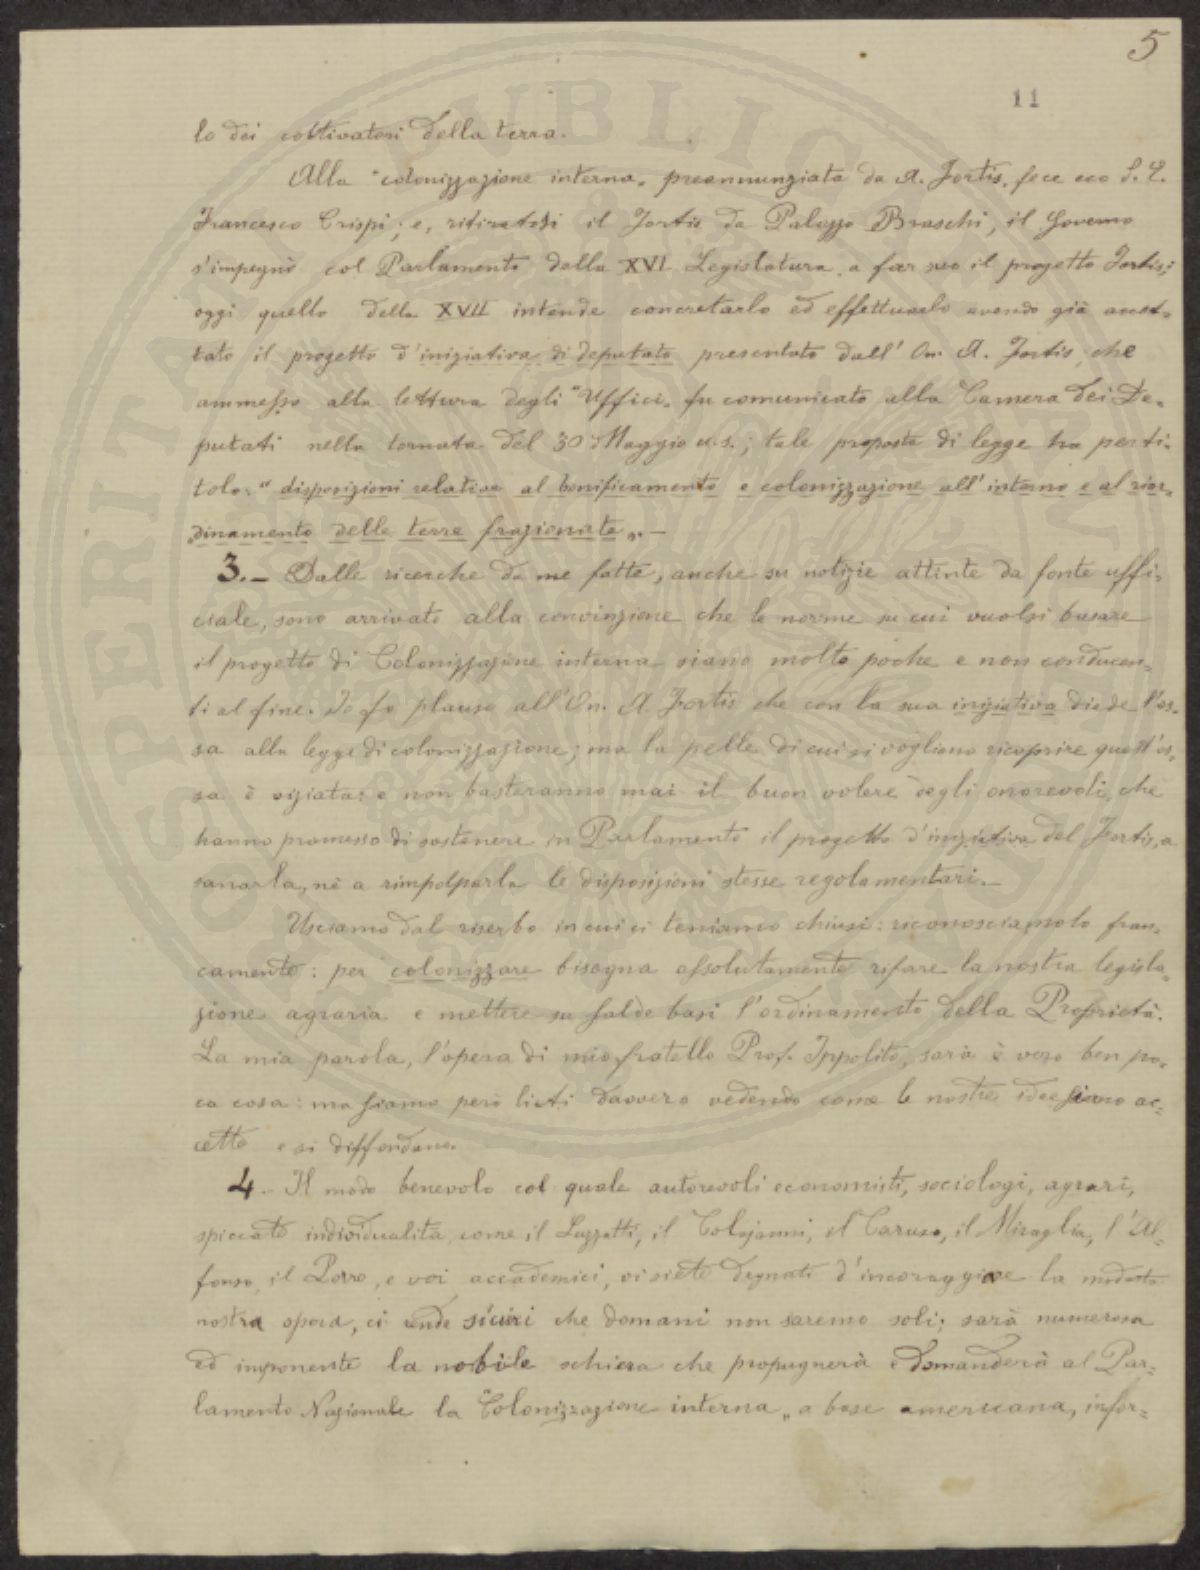 5
11
lo dei coltivatori della terra.
Alla "colonizzazione interna" preannunziata da A. Fortis, fece eco S. E.
Francesco Crispi; e, ritiratosi il Fortis da Palazzo Braschi, il Governo
s'impegnò col Parlamento della XVI Legislatura, a far suo il progetto Fortis;
oggi quello della XVII intende concretarlo ed effettuarlo avendo già accet-
tato il progetto d'iniziativa di deputato presentato dall'On. A. Fortis, che
ammesso alla lettura degli "Uffici" fu comunicato alla Camera dei De-
putati nella tornata del 30 Maggio u.s.; tale proposta di legge ha per ti-
tolo: "disposizioni relative al bonificamento e colonizzazione all'interno e al rior-
dinamento delle terre frazionate". —
3. — Dalle ricerche da me fatte, anche su notizie attinte da fonte uffi-
ciale, sono arrivato alla convinzione che le norme su cui vuolsi basare
il progetto di Colonizzazione interna siano molto poche e non conducen-
ti al fine. Io fo plauso all'On. A. Fortis che con la sua iniziativa diede l'os-
sa alla legge di colonizzazione; ma la pelle di cui si vogliono ricoprire quest'os-
sa è viziata: e non basteranno mai il buon volere degli onorevoli, che
hanno promesso di sostenere in Parlamento il progetto d'iniziativa del Fortis, a
sanarla, nè a rimpolparla le disposizioni stesse regolamentari. —
Usciamo dal riserbo in cui ci teniamo chiusi: riconosciamolo fran-
camente: per colonizzare bisogna assolutamente rifare la nostra legisla-
zione agraria e mettere su salde basi l'ordinamento della Proprietà.
La mia parola, l'opera di mio fratello Prof. Ippolito, sarà è vero ben po-
ca cosa: ma siamo però lieti davvero vedendo come le nostre idee siano ac-
cette e si diffondano.
4. - Il modo benevolo col quale autorevoli economisti, sociologi, agrari,
spiccate individualità, come il Luzzatti, il Colajanni, il Caruso, il Miraglia, l'Al-
fonso, il Porro, e voi accademici, vi siete degnati d'incoraggiare la modesta
nostra opera, ci rende sicuri che domani non saremo soli; sarà numerosa
ed imponente la nobile schiera che propugnerà e domanderà al Par-
lamento Nazionale la "Colonizzazione interna" a base americana, infor-